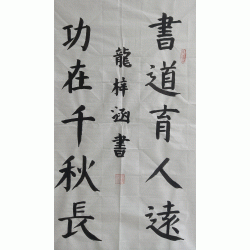 書道育人遠
功在千秋長
龍梓涵書